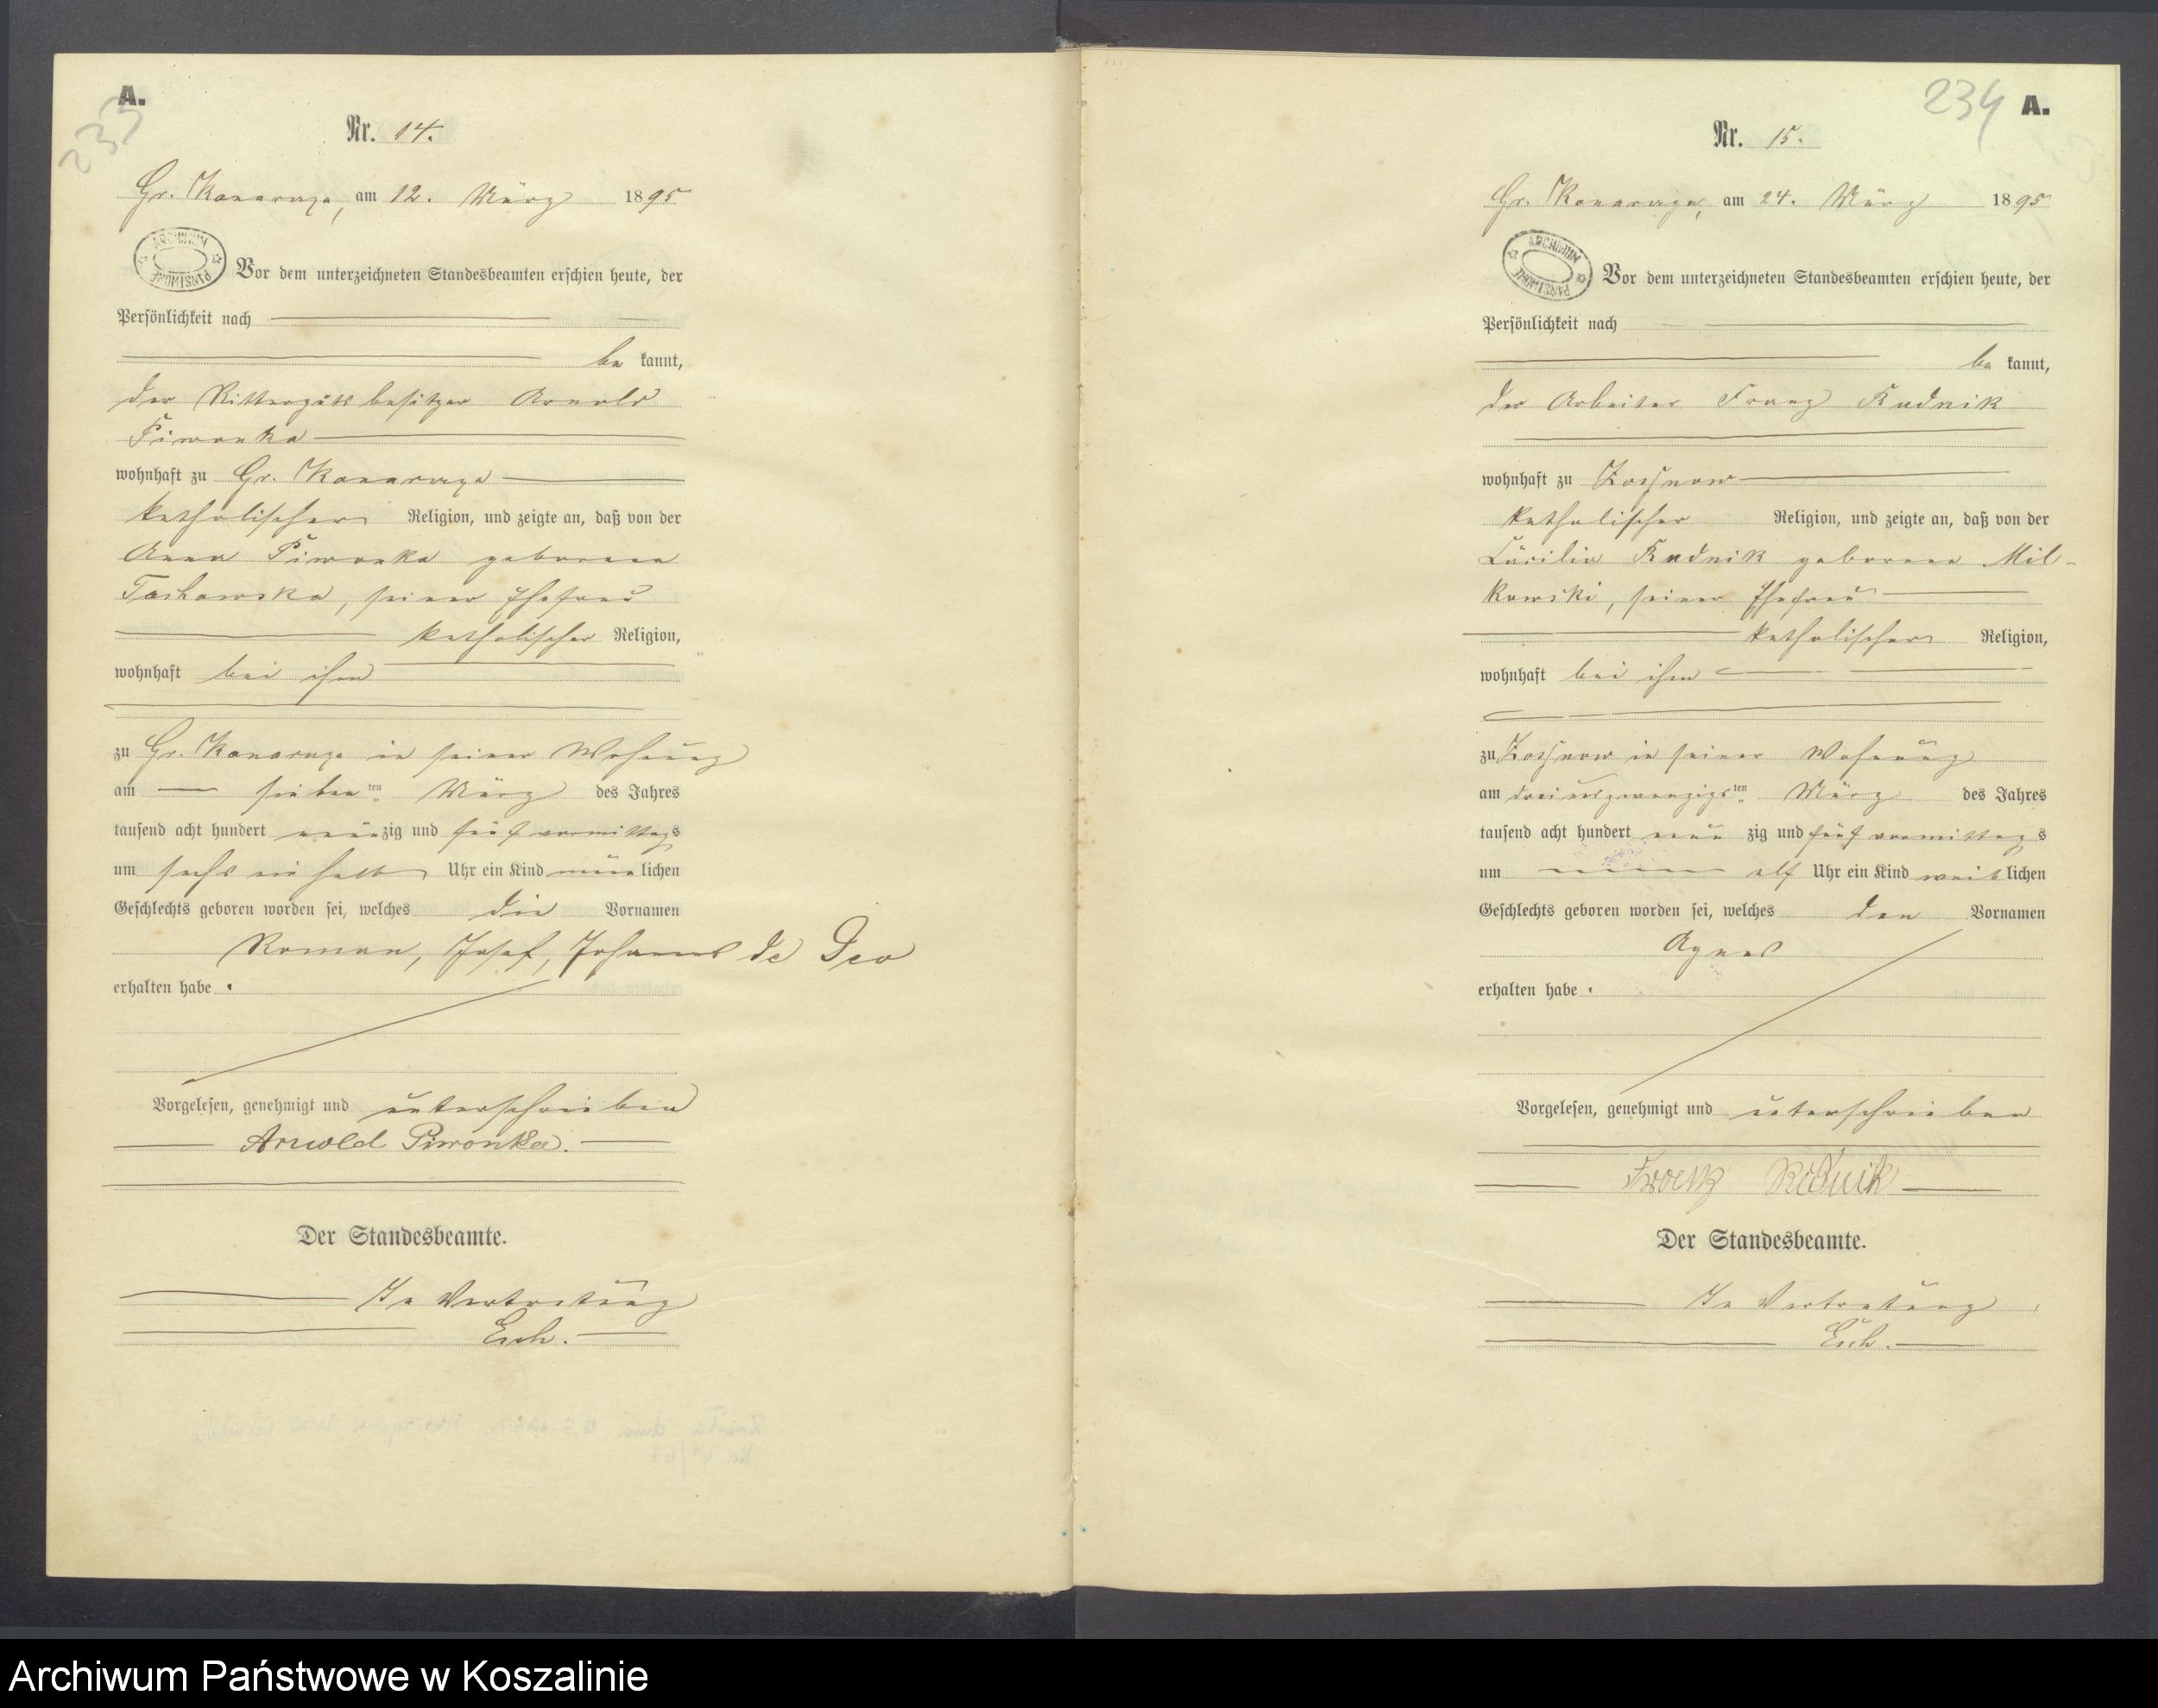 A.
233
Nr. 14.
Gr. Konarczyn, am 12. März 1895
ARCHIWUM PAŃSTWOWE
Vor dem unterzeichneten Standesbeamten erschien heute, der
Persönlichkeit nach
be kannt,
der Rittergutsbesitzer Arnold
Piwonka
wohnhaft zu Gr. Konarczyn
katholischer Religion, und zeigte an, daß von der
Anna Piwonka geborenen
seiner Ehefrau
katholischer Religion,
wohnhaft bei ihm
zu Gr. Konarczyn in seiner Wohnung
am sieben ten März des Jahres
tausend acht hundert neunzig und fünf vormittags
um sechs ein halb Uhr ein Kind männlichen
Geschlechts geboren worden sei, welches die Vornamen
Roman, Josef, Johannes de Deo
erhalten habe.
Vorgelesen, genehmigt und unterschrieben
Arnold Piwonka.
Der Standesbeamte.
In Vertretung
234 A.
Nr. 15.
Gr. Konarczyn, am 24. März 1895
ARCHIWUM PAŃSTWOWE
Vor dem unterzeichneten Standesbeamten erschien heute, der
Persönlichkeit nach
be kannt,
der Arbeiter Franz Rudnik
wohnhaft zu
katholischer Religion, und zeigte an, daß von der
Cäcilie Rudnik geborenen Mil-
kowski, seiner Ehefrau
katholischer Religion,
wohnhaft bei ihm
zu in seiner Wohnung
am dreiundzwanzigsten März des Jahres
tausend acht hundert neun zig und fünf vormittag s
um elf Uhr ein Kind weiblichen
Geschlechts geboren worden sei, welches den Vornamen
Agnes
erhalten habe.
Vorgelesen, genehmigt und unterschrieben
Franz Rudnik
Der Standesbeamte.
In Vertretung
Archiwum Państwowe w Koszalinie